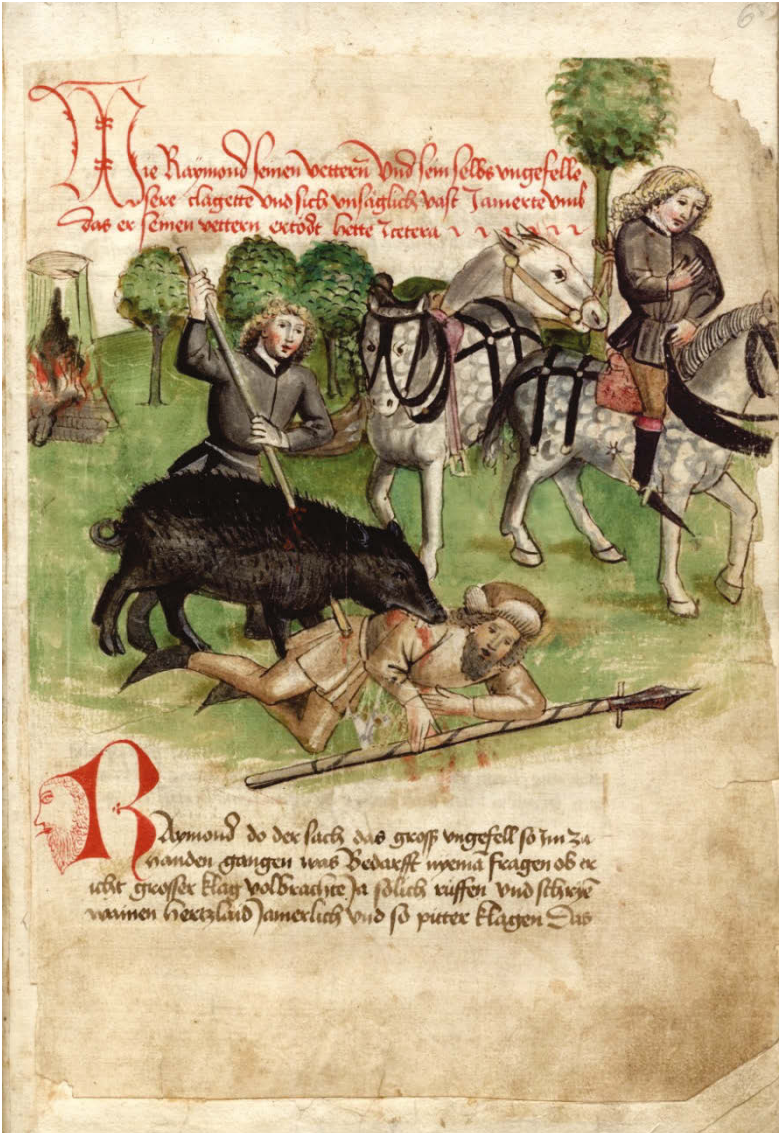 Wie Raÿmond seinen vettern vnd sein selbs vngefelle
sere clagette vnd sich vnsäglich vast Jamerte vmb
das er seinen vettern ertödt hette Jcetera
RAymond do der sach das gross vngefell so Jm zu
handen gangen was Bedarfft nyema fragen ob er
icht grosser klag volbrachte Ja sölich rüffen vnd schryē
wainen hertzlaid Jamerlich vnd so pitter klagen Das